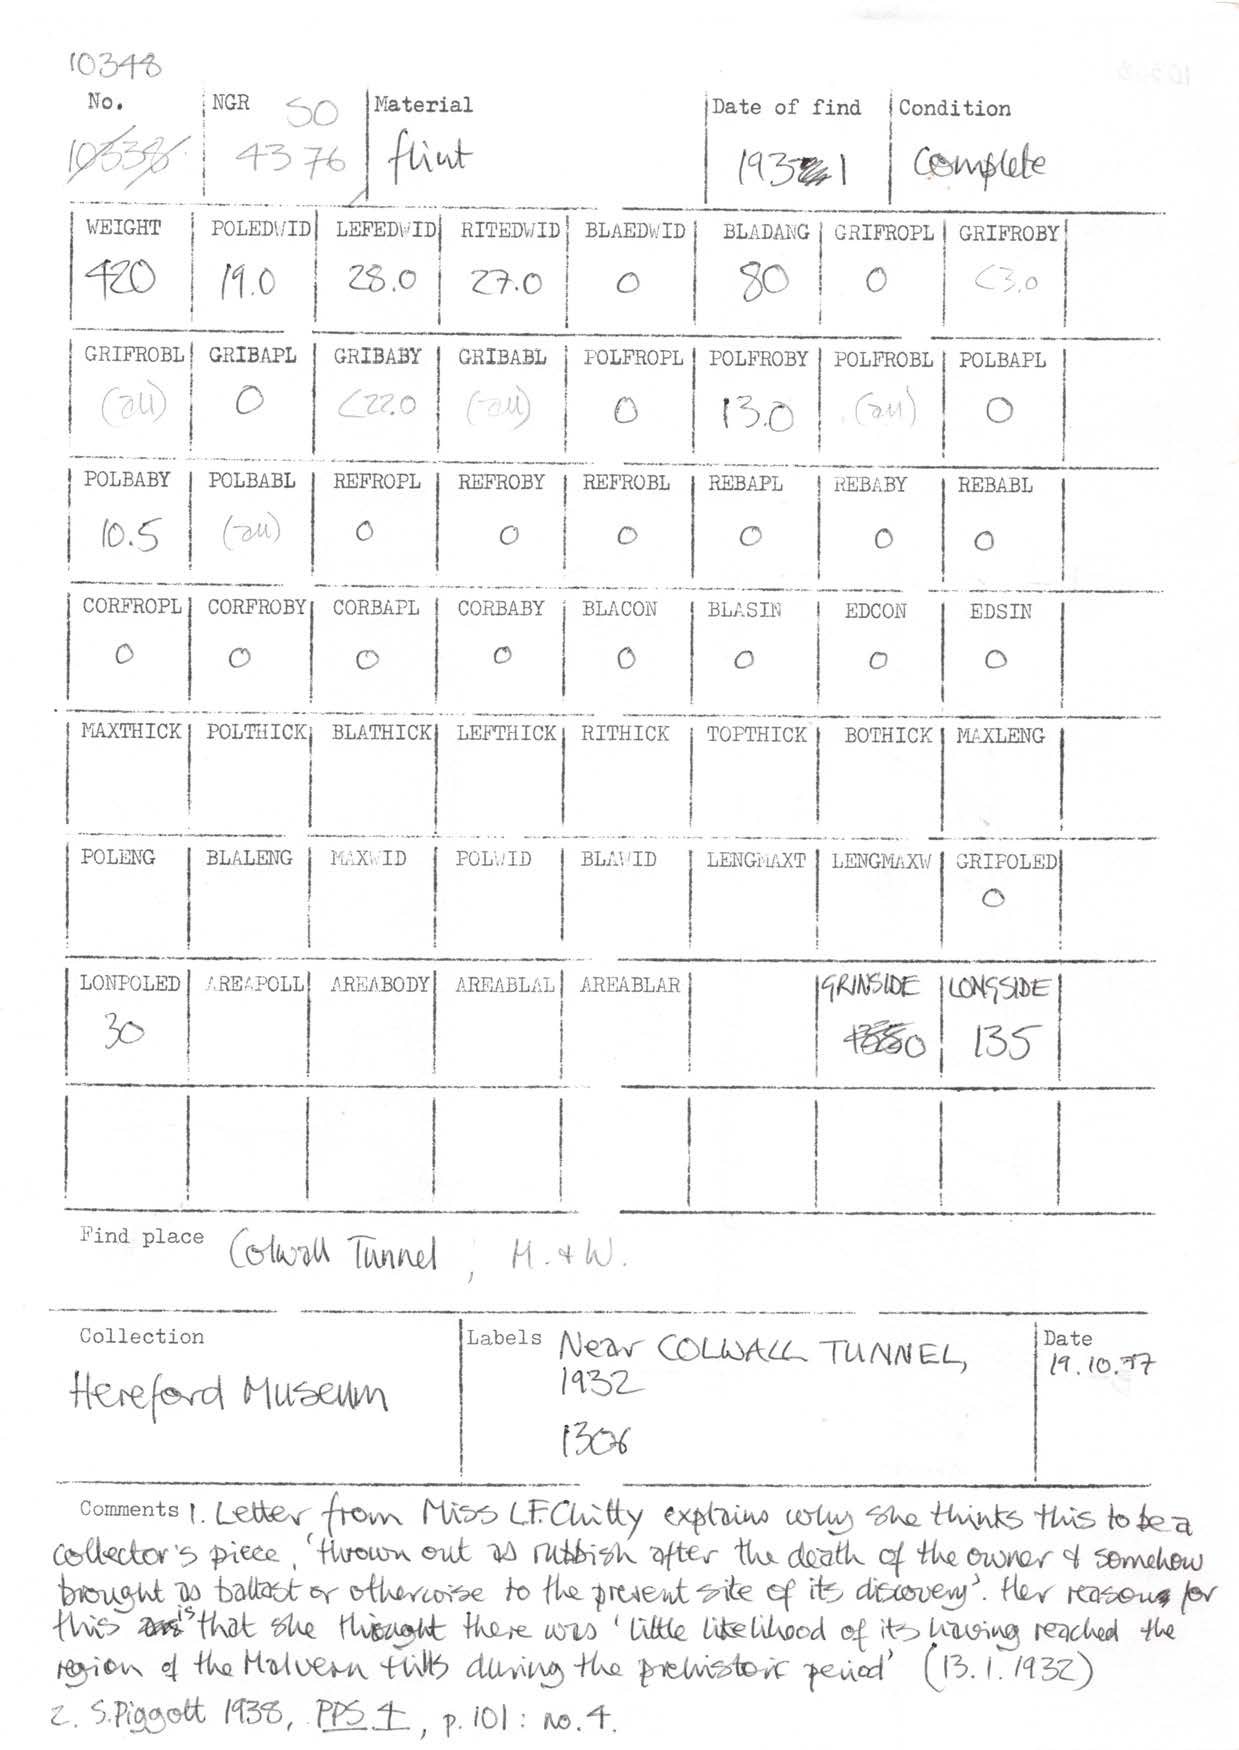 10348
No. NGR SO Material Date of find Condition
10338 43 76 flint 1931 Complete
WEIGHT POLEDWID LEFEDWID RITEDWID BLAEDWID BLADANG GRIFROPL GRIFROBY
420 19.0 28.0 27.0 0 80 0 <3.0
GRIFROBL GRIBAPL GRIBABY GRIBABL POLFROPL POLFROBY POLFROBL POLBAPL
(all) 0 <22.0 (all) 0 13.0 (all) 0
POLBABY POLBABL REFROPL REFROBY REFROBL REBAPL REBABY REBABL
10.5 (all) 0 0 0 0 0 0
CORFROPL CORFROBY CORBAPL CORBABY BLACON BLASIN EDCON EDSIN
0 0 0 0 0 0 0 0
MAXTHICK POLTHICK BLATHICK LEFTHICK RITHICK TOPTHICK BOTHICK MAXLENG
POLENG BLALENG MAXWID POLWID BLAWID LENGMAXT LENGMAXW GRIPOLED
0
LONPOLED AREAPOLL AREABODY AREABLAL AREABLAR GRINSIDE LONGSIDE
30 0 135
Find place Colwall Tunnel, H. & W.
Collection Labels Near COLWALL TUNNEL, Date
1932 19.10.77
Hereford Museum
1306
Comments 1. Letter from Miss L.F. Chitty explains why she thinks this to be a
collector's piece, 'thrown out as rubbish after the death of the owner & somehow
brought as ballast or otherwise to the present site of its discovery'. Her reason for
this is that she thought there was 'little likelihood of its having reached the
region of the Malvern Hills during the prehistoric period' (13.1.1932)
2. S. Piggott 1938, PPS 4, p. 101: no. 4.